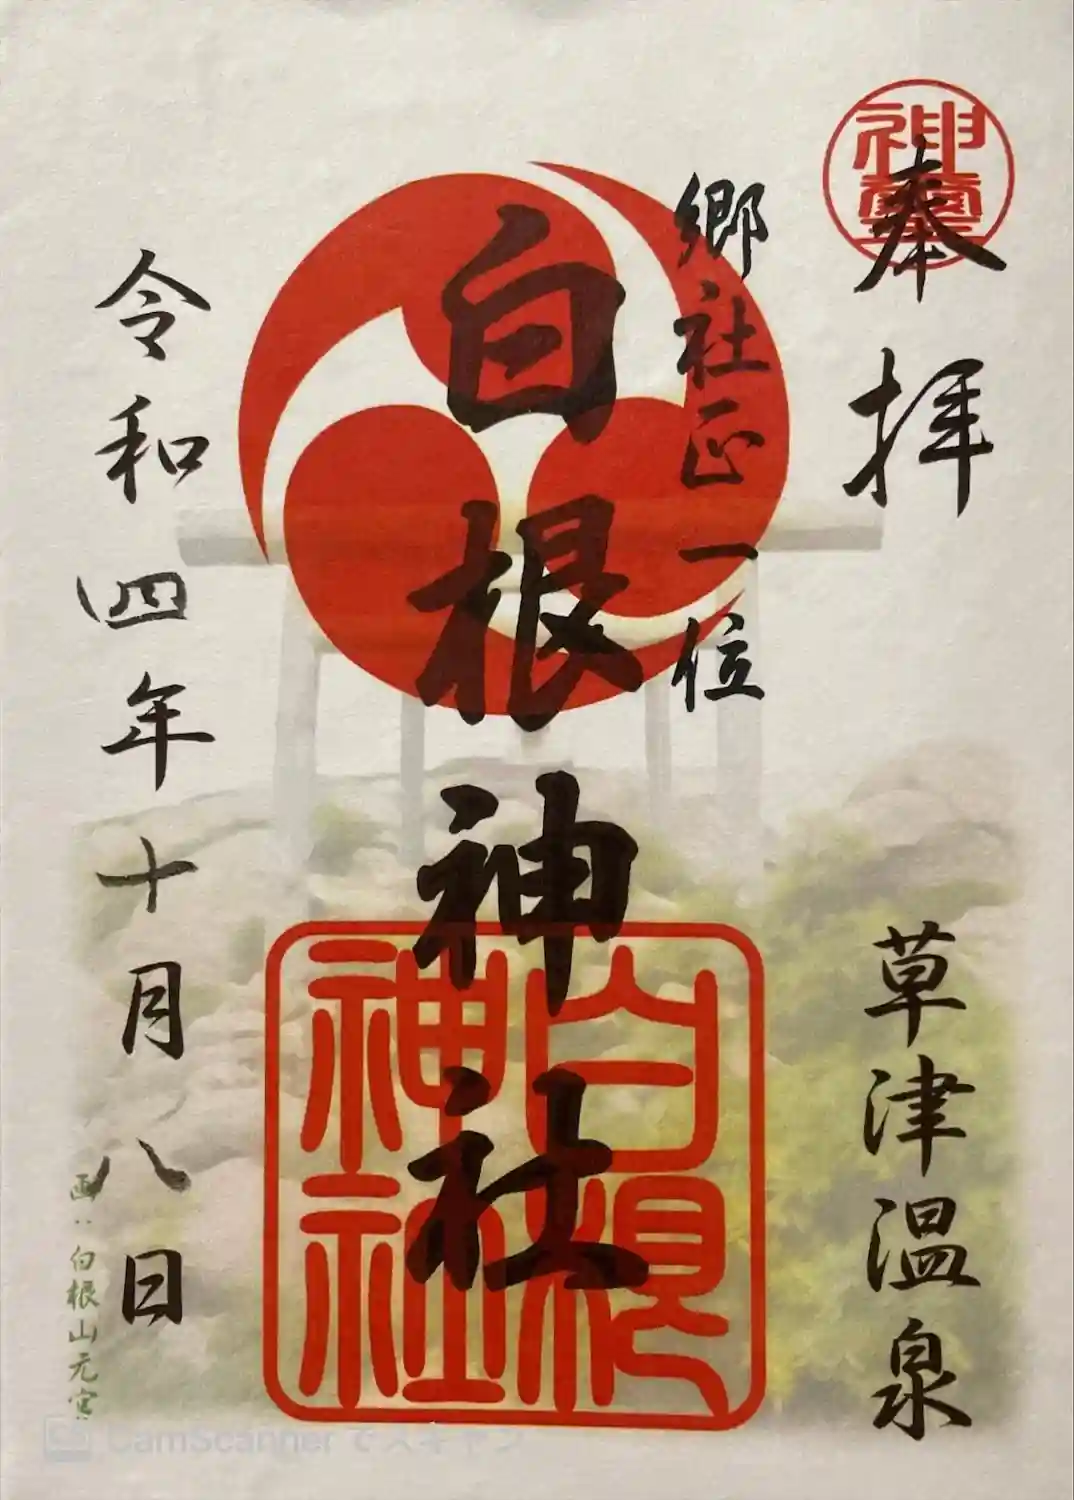 奉拝
草津温泉
郷社正一位
白根神社
白根
神社
令和四年十月八日
画:白根山元宮
CamScanner でスキャン